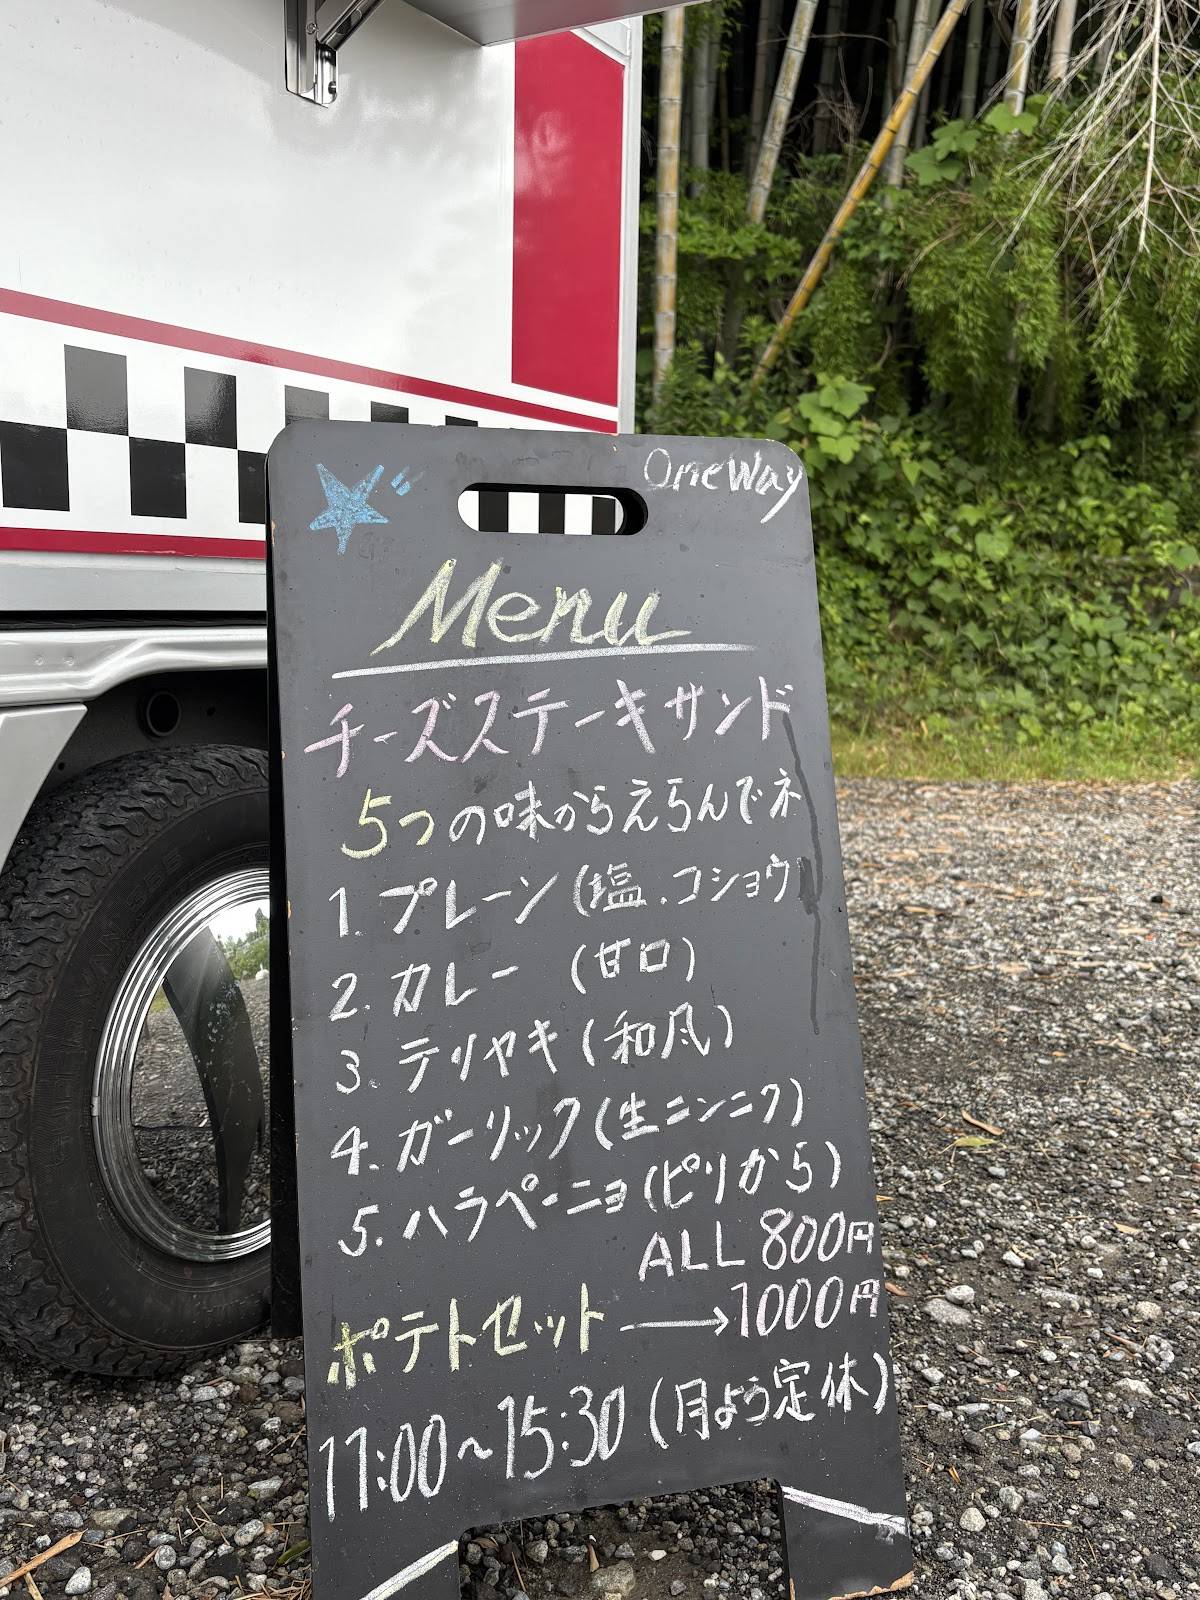 One Way
Menu
チーズステーキサンド
5つの味からえらんでネ
1. プレーン (塩.コショウ)
2. カレー (甘口)
3. テリヤキ (和風)
4. ガーリック (生ニンニク)
5. ハラペーニョ (ピリから)
ALL 800円
ポテトセット → 1000円
11:00~15:30 (月よう定休)